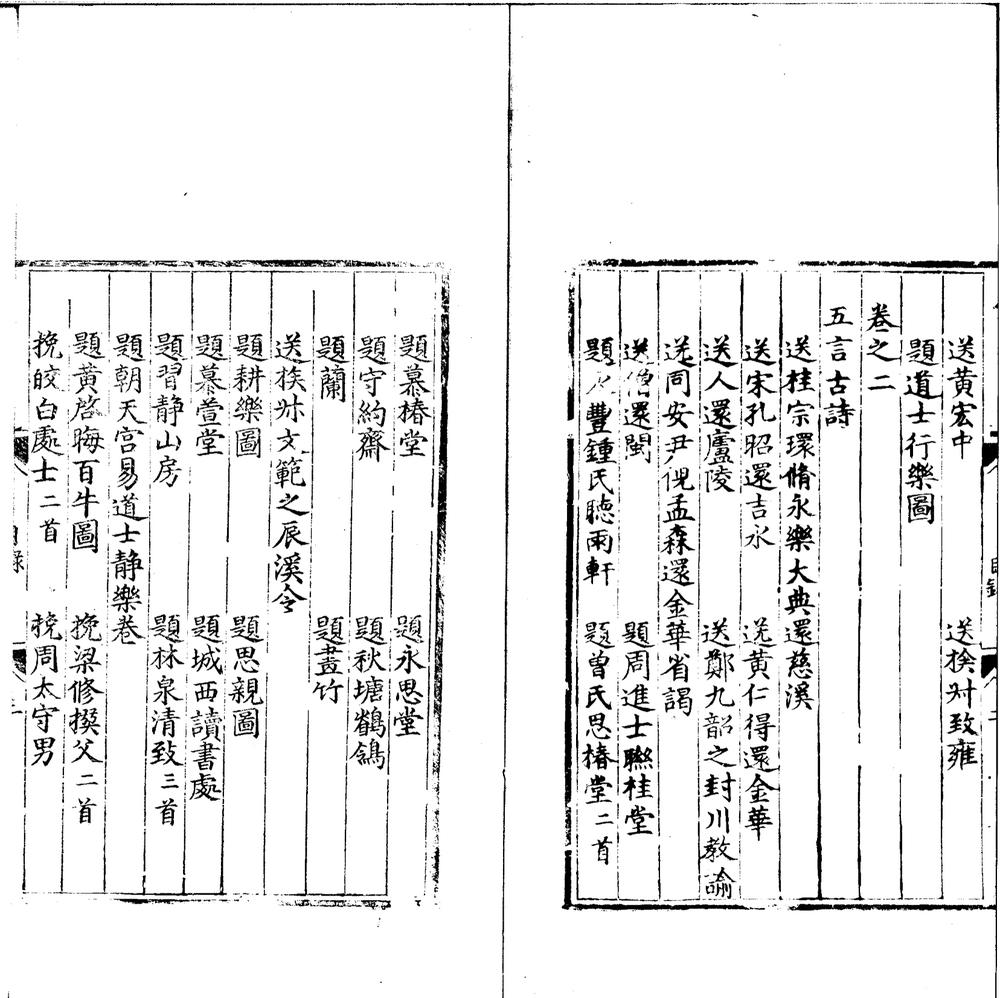 送黃宏中　送挨廾致雍
題道士行樂圖
卷之二
五言古詩
送桂宗環脩永樂大典還慈溪
送宋孔昭還吉永　送黃仁得還金華
送人還廬陵　送鄭九韶之封川教諭
送同安尹倪孟森還金華省謁
送僧還閩　題周進士聯桂堂
題豐鍾氏聽雨軒　題曾氏思椿堂二首
目錄
二
題慕椿堂　題永思堂
題守約齋　題秋塘鶺鴒
題蘭　題畫竹
送挨尗文範之辰溪令
題耕樂圖　題思親圖
題慕萱堂　題城西讀書處
題習静山房　題林泉清致三首
題朝天宮易道士静樂卷
題黃啓晦百牛圖　挽梁修撰父二首
挽皎白處士二首　挽周太守男